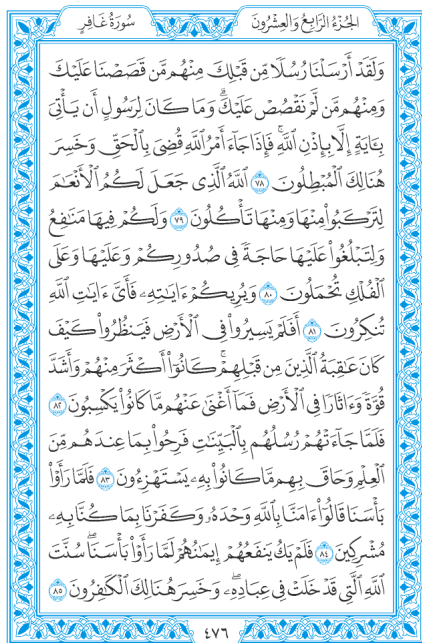 الجُزءُ الرَّابِعُ وَالعِشْرُونَ
سُورَةُ غَافِرٍ
وَلَقَدْ أَرْسَلْنَا رُسُلًا مِّن قَبْلِكَ مِنْهُم مَّن قَصَصْنَا عَلَيْكَ
وَمِنْهُم مَّن لَّمْ نَقْصُصْ عَلَيْكَ ۗ وَمَا كَانَ لِرَسُولٍ أَن يَأْتِىَ
بِـَٔايَةٍ إِلَّا بِإِذْنِ ٱللَّهِ ۚ فَإِذَا جَآءَ أَمْرُ ٱللَّهِ قُضِىَ بِٱلْحَقِّ وَخَسِرَ
هُنَالِكَ ٱلْمُبْطِلُونَ ٧٨ ٱللَّهُ ٱلَّذِى جَعَلَ لَكُمُ ٱلْأَنْعَٰمَ
لِتَرْكَبُوا۟ مِنْهَا وَمِنْهَا تَأْكُلُونَ ٧٩ وَلَكُمْ فِيهَا مَنَٰفِعُ
وَلِتَبْلُغُوا۟ عَلَيْهَا حَاجَةً فِى صُدُورِكُمْ وَعَلَيْهَا وَعَلَى
ٱلْفُلْكِ تُحْمَلُونَ ٨٠ وَيُرِيكُمْ ءَايَٰتِهِۦ فَأَىَّ ءَايَٰتِ ٱللَّهِ
تُنكِرُونَ ٨١ أَفَلَمْ يَسِيرُوا۟ فِى ٱلْأَرْضِ فَيَنظُرُوا۟ كَيْفَ
كَانَ عَٰقِبَةُ ٱلَّذِينَ مِن قَبْلِهِمْ ۚ كَانُوٓا۟ أَكْثَرَ مِنْهُمْ وَأَشَدَّ
قُوَّةً وَءَاثَارًا فِى ٱلْأَرْضِ فَمَآ أَغْنَىٰ عَنْهُم مَّا كَانُوا۟ يَكْسِبُونَ ٨٢
فَلَمَّا جَآءَتْهُمْ رُسُلُهُم بِٱلْبَيِّنَٰتِ فَرِحُوا۟ بِمَا عِندَهُم مِّنَ
ٱلْعِلْمِ وَحَاقَ بِهِم مَّا كَانُوا۟ بِهِۦ يَسْتَهْزِءُونَ ٨٣ فَلَمَّا رَأَوْا۟
بَأْسَنَا قَالُوٓا۟ ءَامَنَّا بِٱللَّهِ وَحْدَهُۥ وَكَفَرْنَا بِمَا كُنَّا بِهِۦ
مُشْرِكِينَ ٨٤ فَلَمْ يَكُ يَنفَعُهُمْ إِيمَٰنُهُمْ لَمَّا رَأَوْا۟ بَأْسَنَا ۖ سُنَّتَ
ٱللَّهِ ٱلَّتِى قَدْ خَلَتْ فِى عِبَادِهِۦ ۖ وَخَسِرَ هُنَالِكَ ٱلْكَٰفِرُونَ ٨٥
٤٧٦